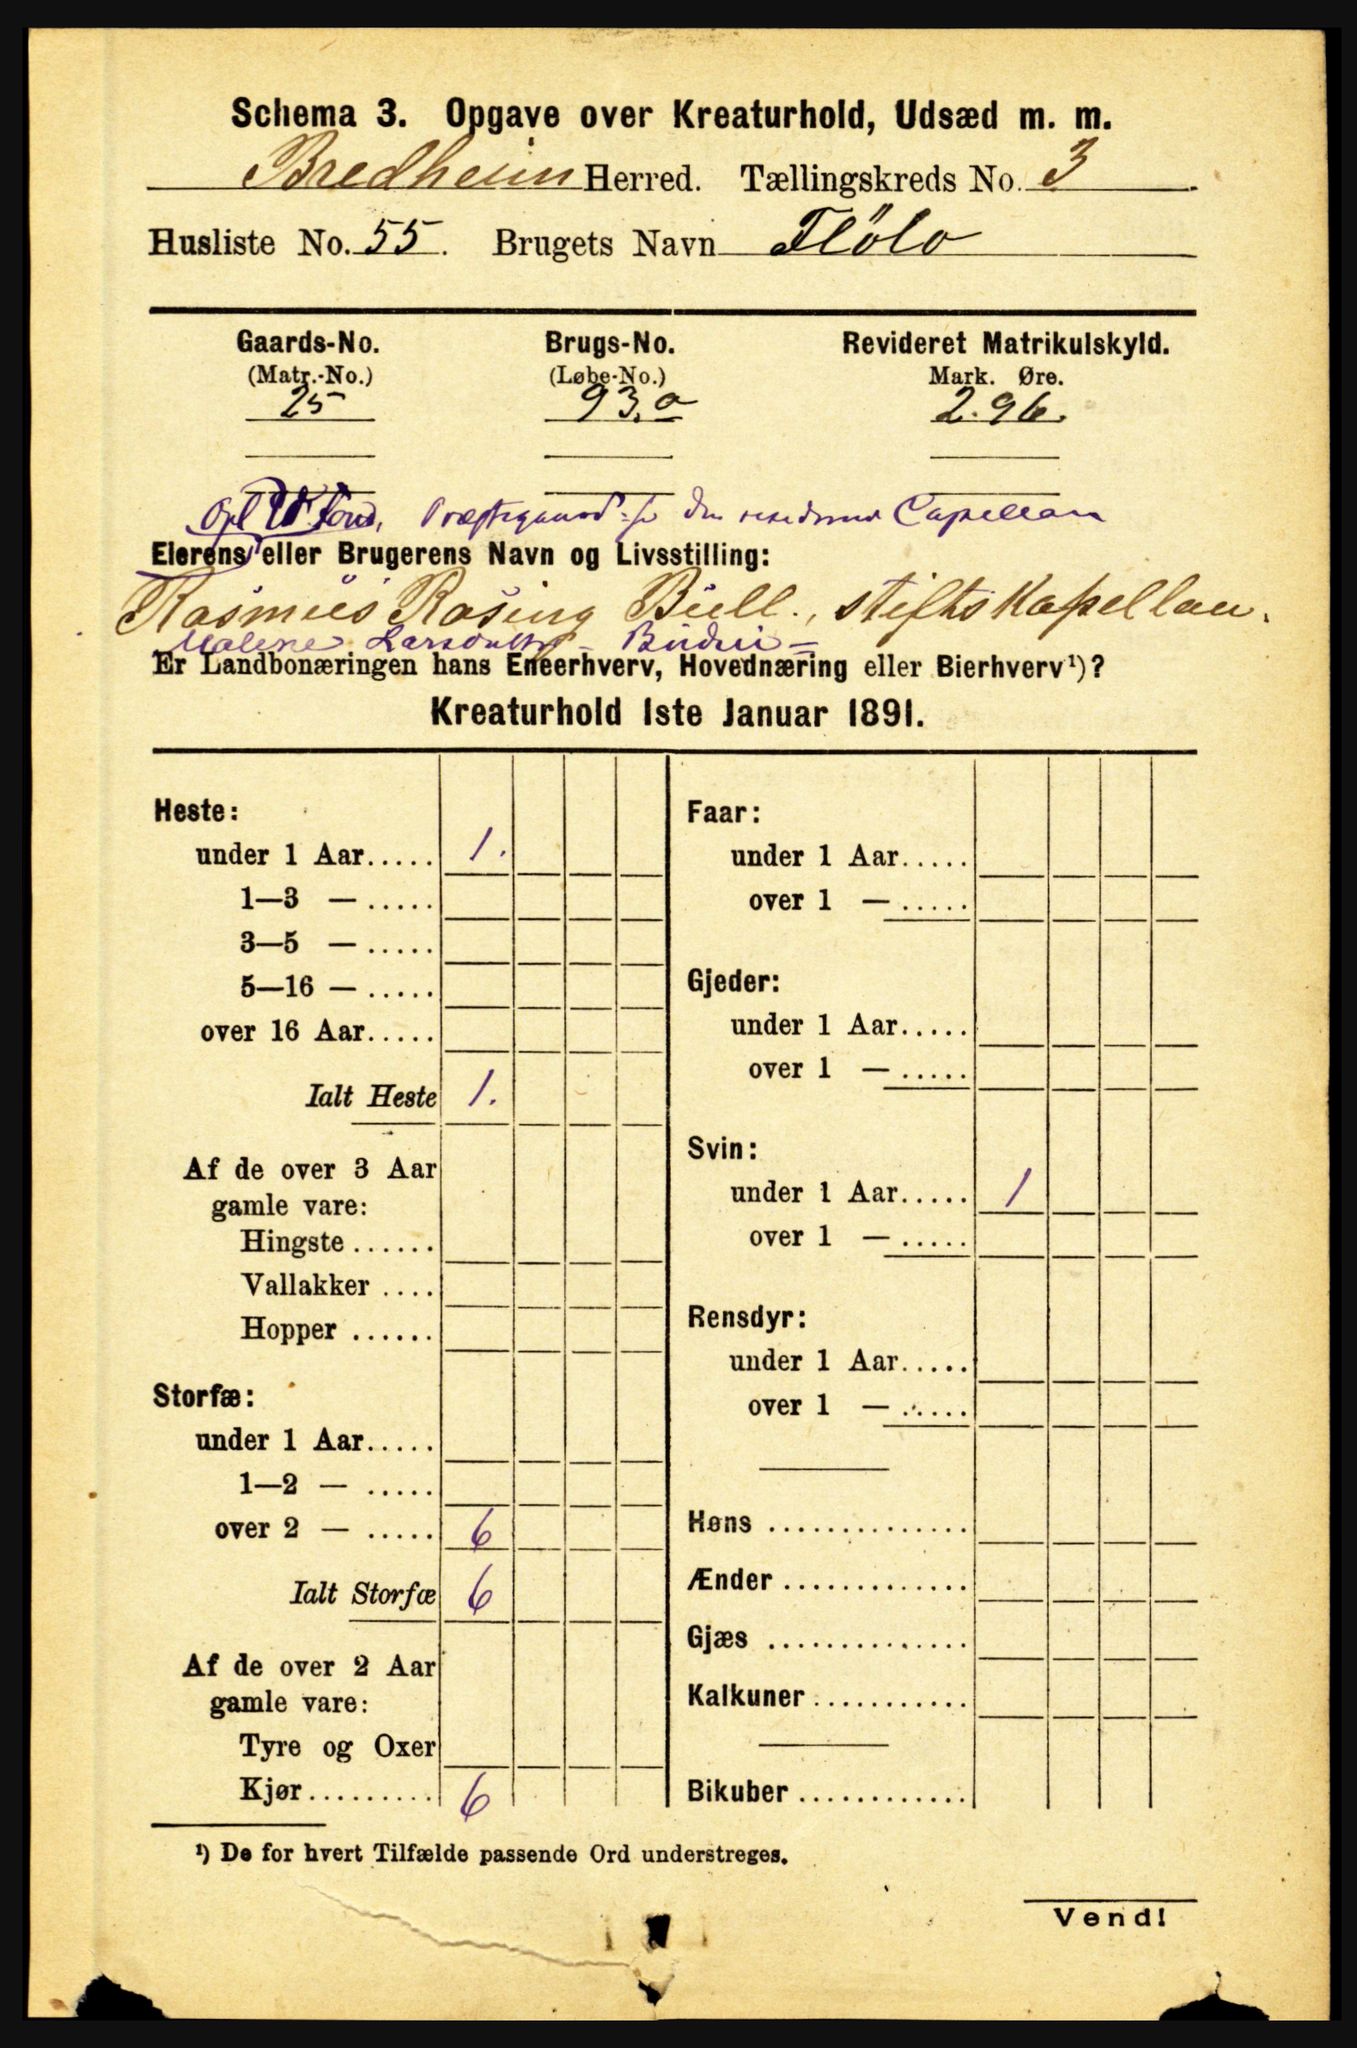 Schema 3. Opgave over Kreaturhold, Udsæd m. m.
Bredheim Herred. Tællingskreds No. 3.
Husliste No. 55. Brugets Navn Flölo
Gaards-No. Brugs-No. Revideret Matrikulskyld.
(Matr.-No.) (Løbe-No.) Mark. Øre.
25 93,a 2.96.
Præstegaard for den Capellan
Eierens eller Brugerens Navn og Livsstilling:
Rasmus Rosing Bull., stiftskapellan.
Malene Larsdatter - Budeie -
Er Landbonæringen hans Eneerhverv, Hovednæring eller Bierhverv¹)?
Kreaturhold 1ste Januar 1891.
Heste:
under 1 Aar..... 1.
1—3 — .....
3—5 — .....
5—16 — .....
over 16 Aar.....
Ialt Heste 1.
Af de over 3 Aar
gamle vare:
Hingste ......
Vallakker ....
Hopper ......
Storfæ:
under 1 Aar.....
1—2 — .....
over 2 — ..... 6
Ialt Storfæ 6
Af de over 2 Aar
gamle vare:
Tyre og Oxer
Kjør......... 6
Faar:
under 1 Aar.....
over 1 — .....
Gjeder:
under 1 Aar.....
over 1 — .....
Svin:
under 1 Aar..... 1
over 1 — .....
Rensdyr:
under 1 Aar.....
over 1 — .....
Høns ..............
Ænder .............
Gjæs ..............
Kalkuner ...........
Bikuber ............
¹) De for hvert Tilfælde passende Ord understreges.
Vend!